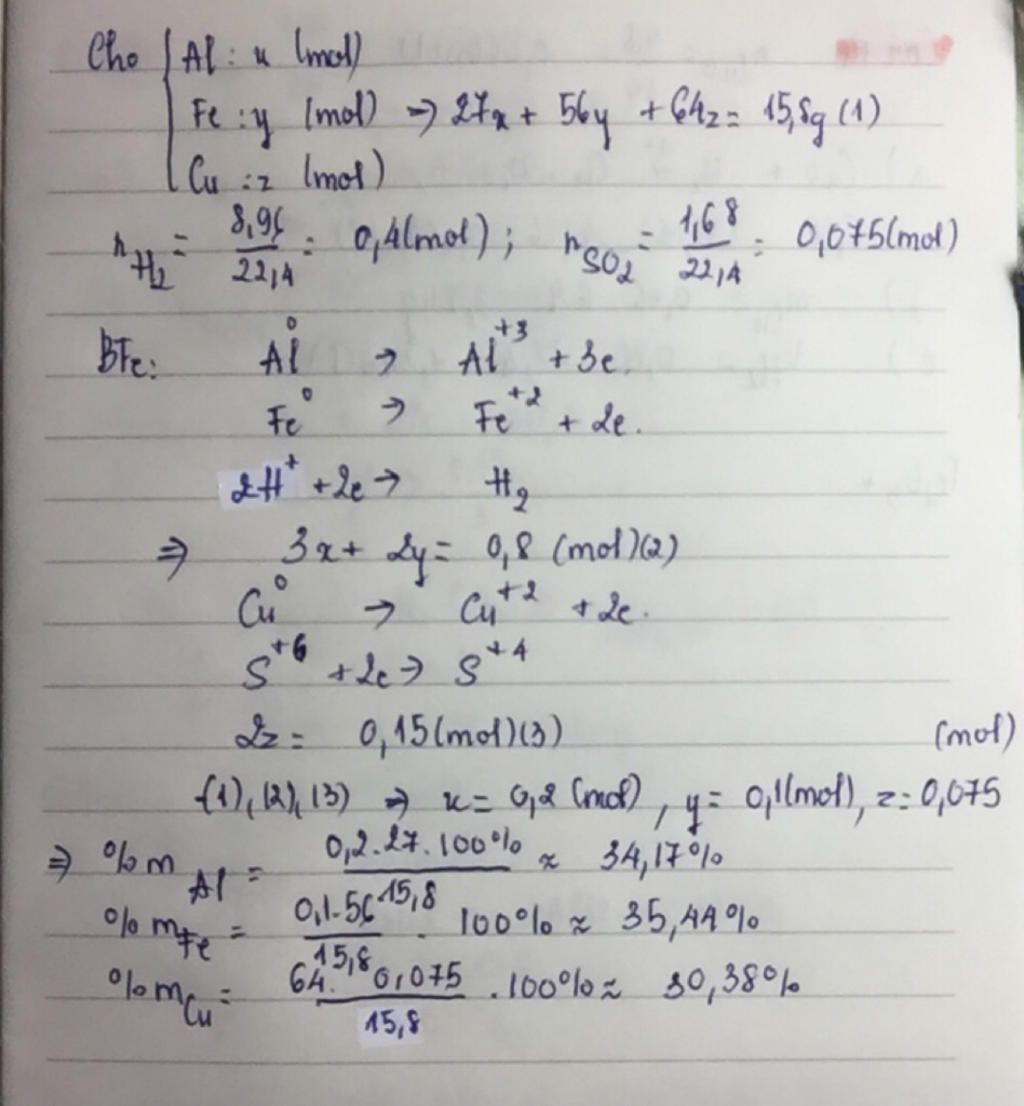 Cho { Al : x (mol)
Fe : y (mol) => 27x + 56y + 64z = 15,8g (1)
Cu : z (mol)
n H2 = 8,96 / 22,4 = 0,4(mol) ; n SO2 = 1,68 / 22,4 = 0,075(mol)
BTe: Al^0 → Al^+3 + 3e.
Fe^0 → Fe^+2 + 2e.
2H^+ + 2e → H2
=> 3x + 2y = 0,8 (mol)(2)
Cu^0 → Cu^+2 + 2e.
S^+6 + 2e → S^+4
2z = 0,15(mol)(3)
(mol)
(1), (2), (3) => x = 0,2 (mol), y = 0,1(mol), z = 0,075
=> % m Al = 0,2.27.100% / 15,8 ≈ 34,17%
% m Fe = 0,1.56 / 15,8 . 100% ≈ 35,44%
% m Cu = 64. 0,075 / 15,8 .100% ≈ 30,38%